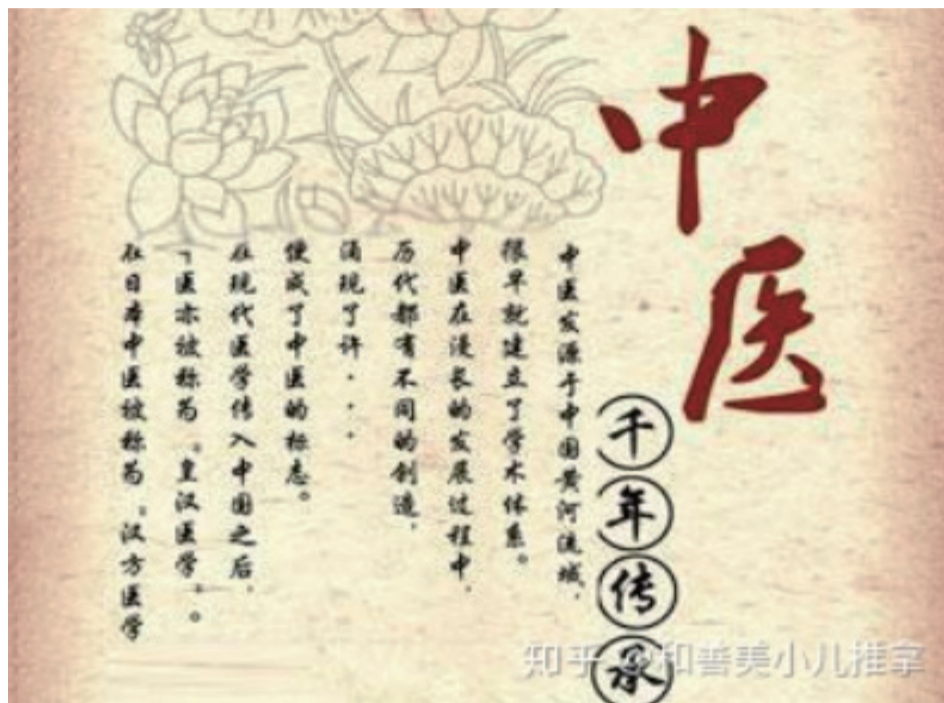 中医
千年传承
中医发源于中国黄河流域，
很早就建立了学术体系。
中医在漫长的发展过程中，
历代都有不同的创造，
涌现了许...
便成了中医的标志。
在现代医学传入中国之后，
医亦被称为“皇汉医学”。
在日本中医被称为“汉方医学
知乎 @和善美小儿推拿